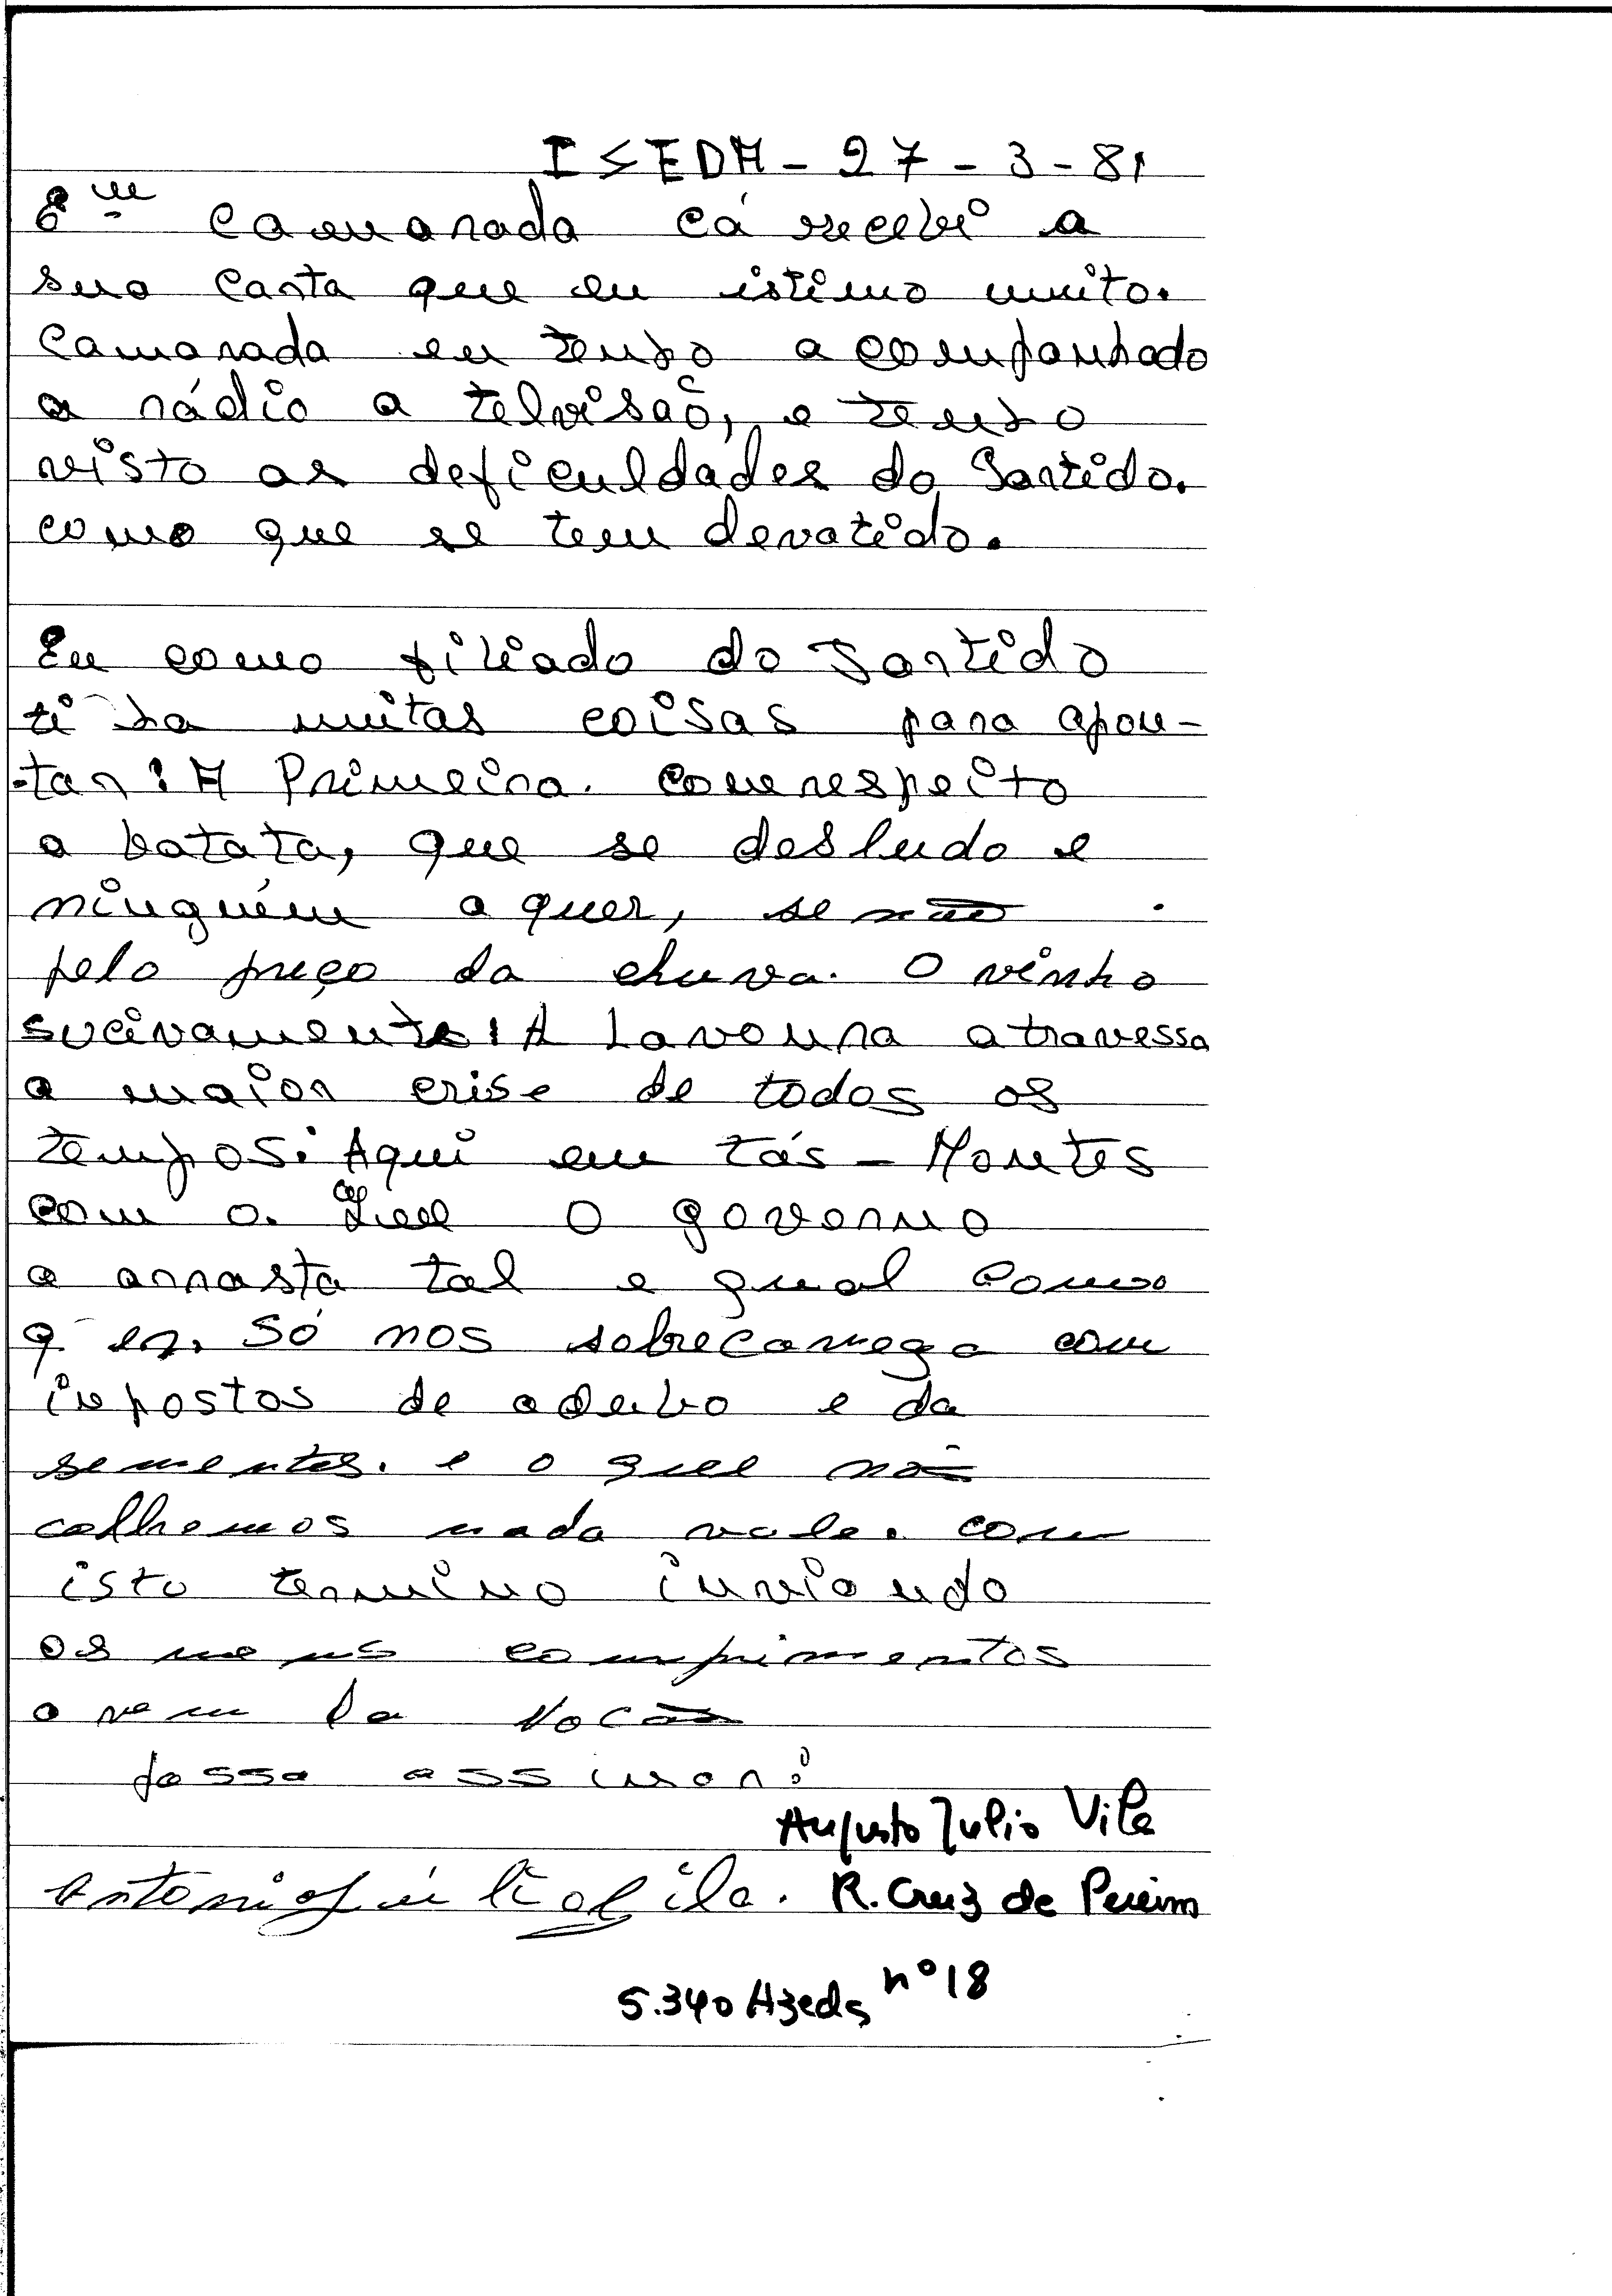 ISEDA - 27 - 3 - 81
camarada cá recebi a
sua carta que eu istimo muito.
camarada eu tenho acompanhado
a rádio a telvisaõ, e tenho
visto as deficuldades do Partido.
como que se tem devatido.
Eu como filiado do Partido
ti ha muitas coisas para apon-
-tar: A Primeira. com respeito
a batata, que se desluda e
ninguém a quer, se não
pelo preço da chuva. O vinho
sucivamente: A Lavoura atravessa
a maior crise de todos os
tempos. Aqui em Tás-Montes
com o. o governo
a arrasta tal e qual como
q er. Só nos sobrecarrega com
inpostos de adubo e da
sementes. e o que nós
colhemos nada vale. com
isto termino inviando
os meus comprimentos
a vem da Nocão
passa assinar:
Augusto Julio Vila
R. Cruz de Pereiro
5.340 Azeds nº 18